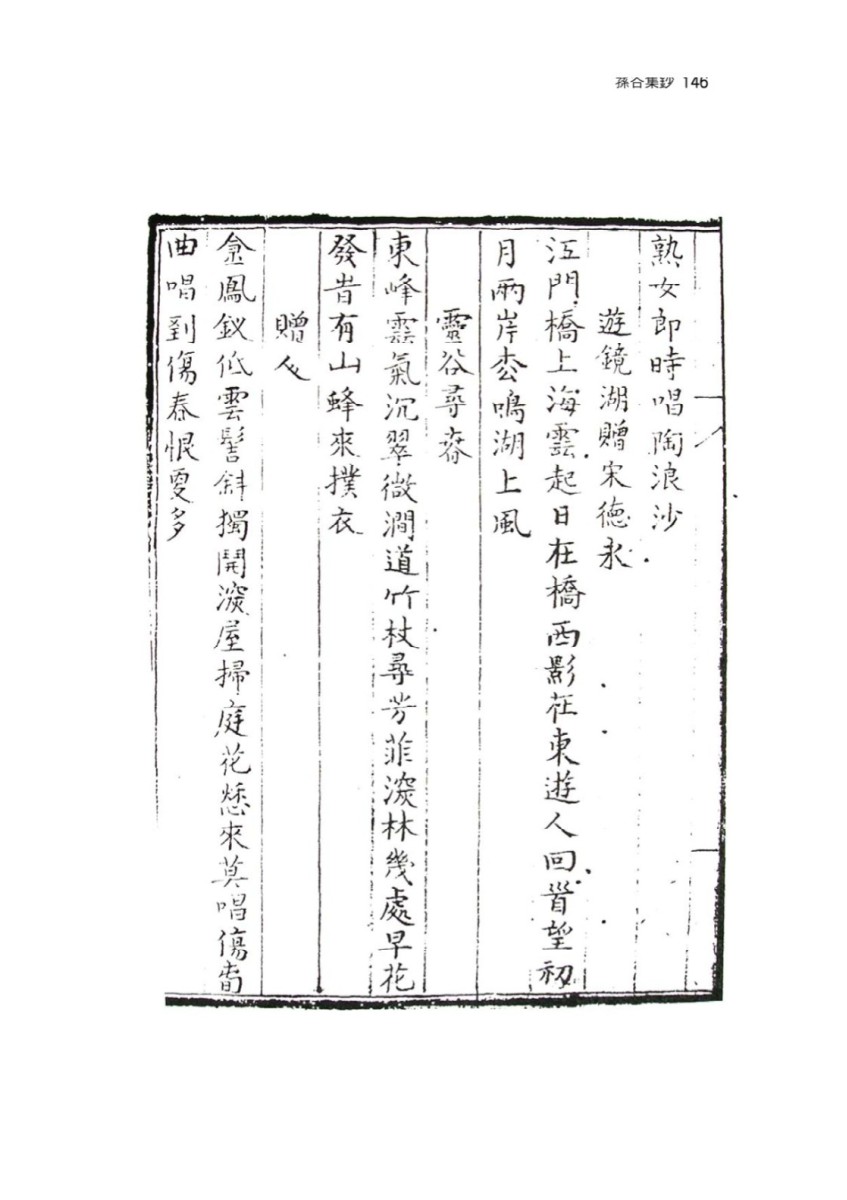 蓀谷集鈔 146
熟女郎時唱陶浪沙
遊鏡湖贈宋德永
江門橋上海雲起日在橋西影在東遊人回首望初
月兩岸枩鳴湖上風
靈谷尋春
東峰雲氣沉翠微澗道竹杖尋芳菲深林幾處早花
發旹有山蜂來撲衣
贈人
金鳳釵低雲髻斜獨開深屋掃庭花愁來莫唱傷旾
曲唱到傷春恨更多